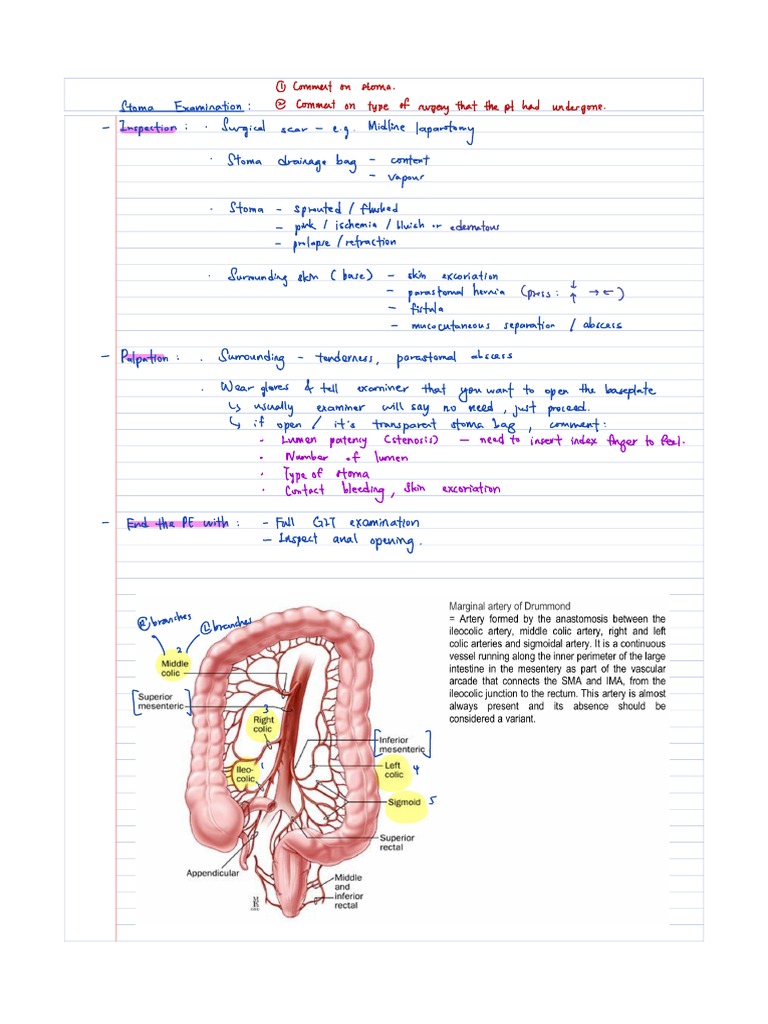 ① Comment on stoma.
Stoma Examination: ② Comment on type of surgery that the pt had undergone.
- Inspection: · Surgical scar - e.g. Midline laparotomy
· Stoma drainage bag - content
- vapour
· Stoma - sprouted / flushed
- pink / ischemia / bluish or edematous
- prolapse / retraction
· Surrounding skin (base) - skin excoriation
- parastomal hernia (press: ↓ ↑ → ←)
- fistula
- mucocutaneous separation / abscess
- Palpation: · Surrounding - tenderness, parastomal abscess
· Wear gloves & tell examiner that you want to open the baseplate
↳ usually examiner will say no need, just proceed.
↳ if open / it's transparent stoma bag, comment:
· Lumen patency (stenosis) - need to insert index finger to feel.
· Number of lumen
· Type of stoma
· Contact bleeding, skin excoriation
- End the PE with: - Full GIT examination
- Inspect anal opening.
Marginal artery of Drummond
= Artery formed by the anastomosis between the
ileocolic artery, middle colic artery, right and left
colic arteries and sigmoidal artery. It is a continuous
vessel running along the inner perimeter of the large
intestine in the mesentery as part of the vascular
arcade that connects the SMA and IMA, from the
ileocolic junction to the rectum. This artery is almost
always present and its absence should be
considered a variant.
branches
branches
2
Middle
colic
[Superior
mesenteric]
3
Right
colic
Ileo-
colic
1
[Inferior
mesenteric]
Left
colic 4
Sigmoid 5
Superior
rectal
Appendicular
Middle
and
inferior
rectal